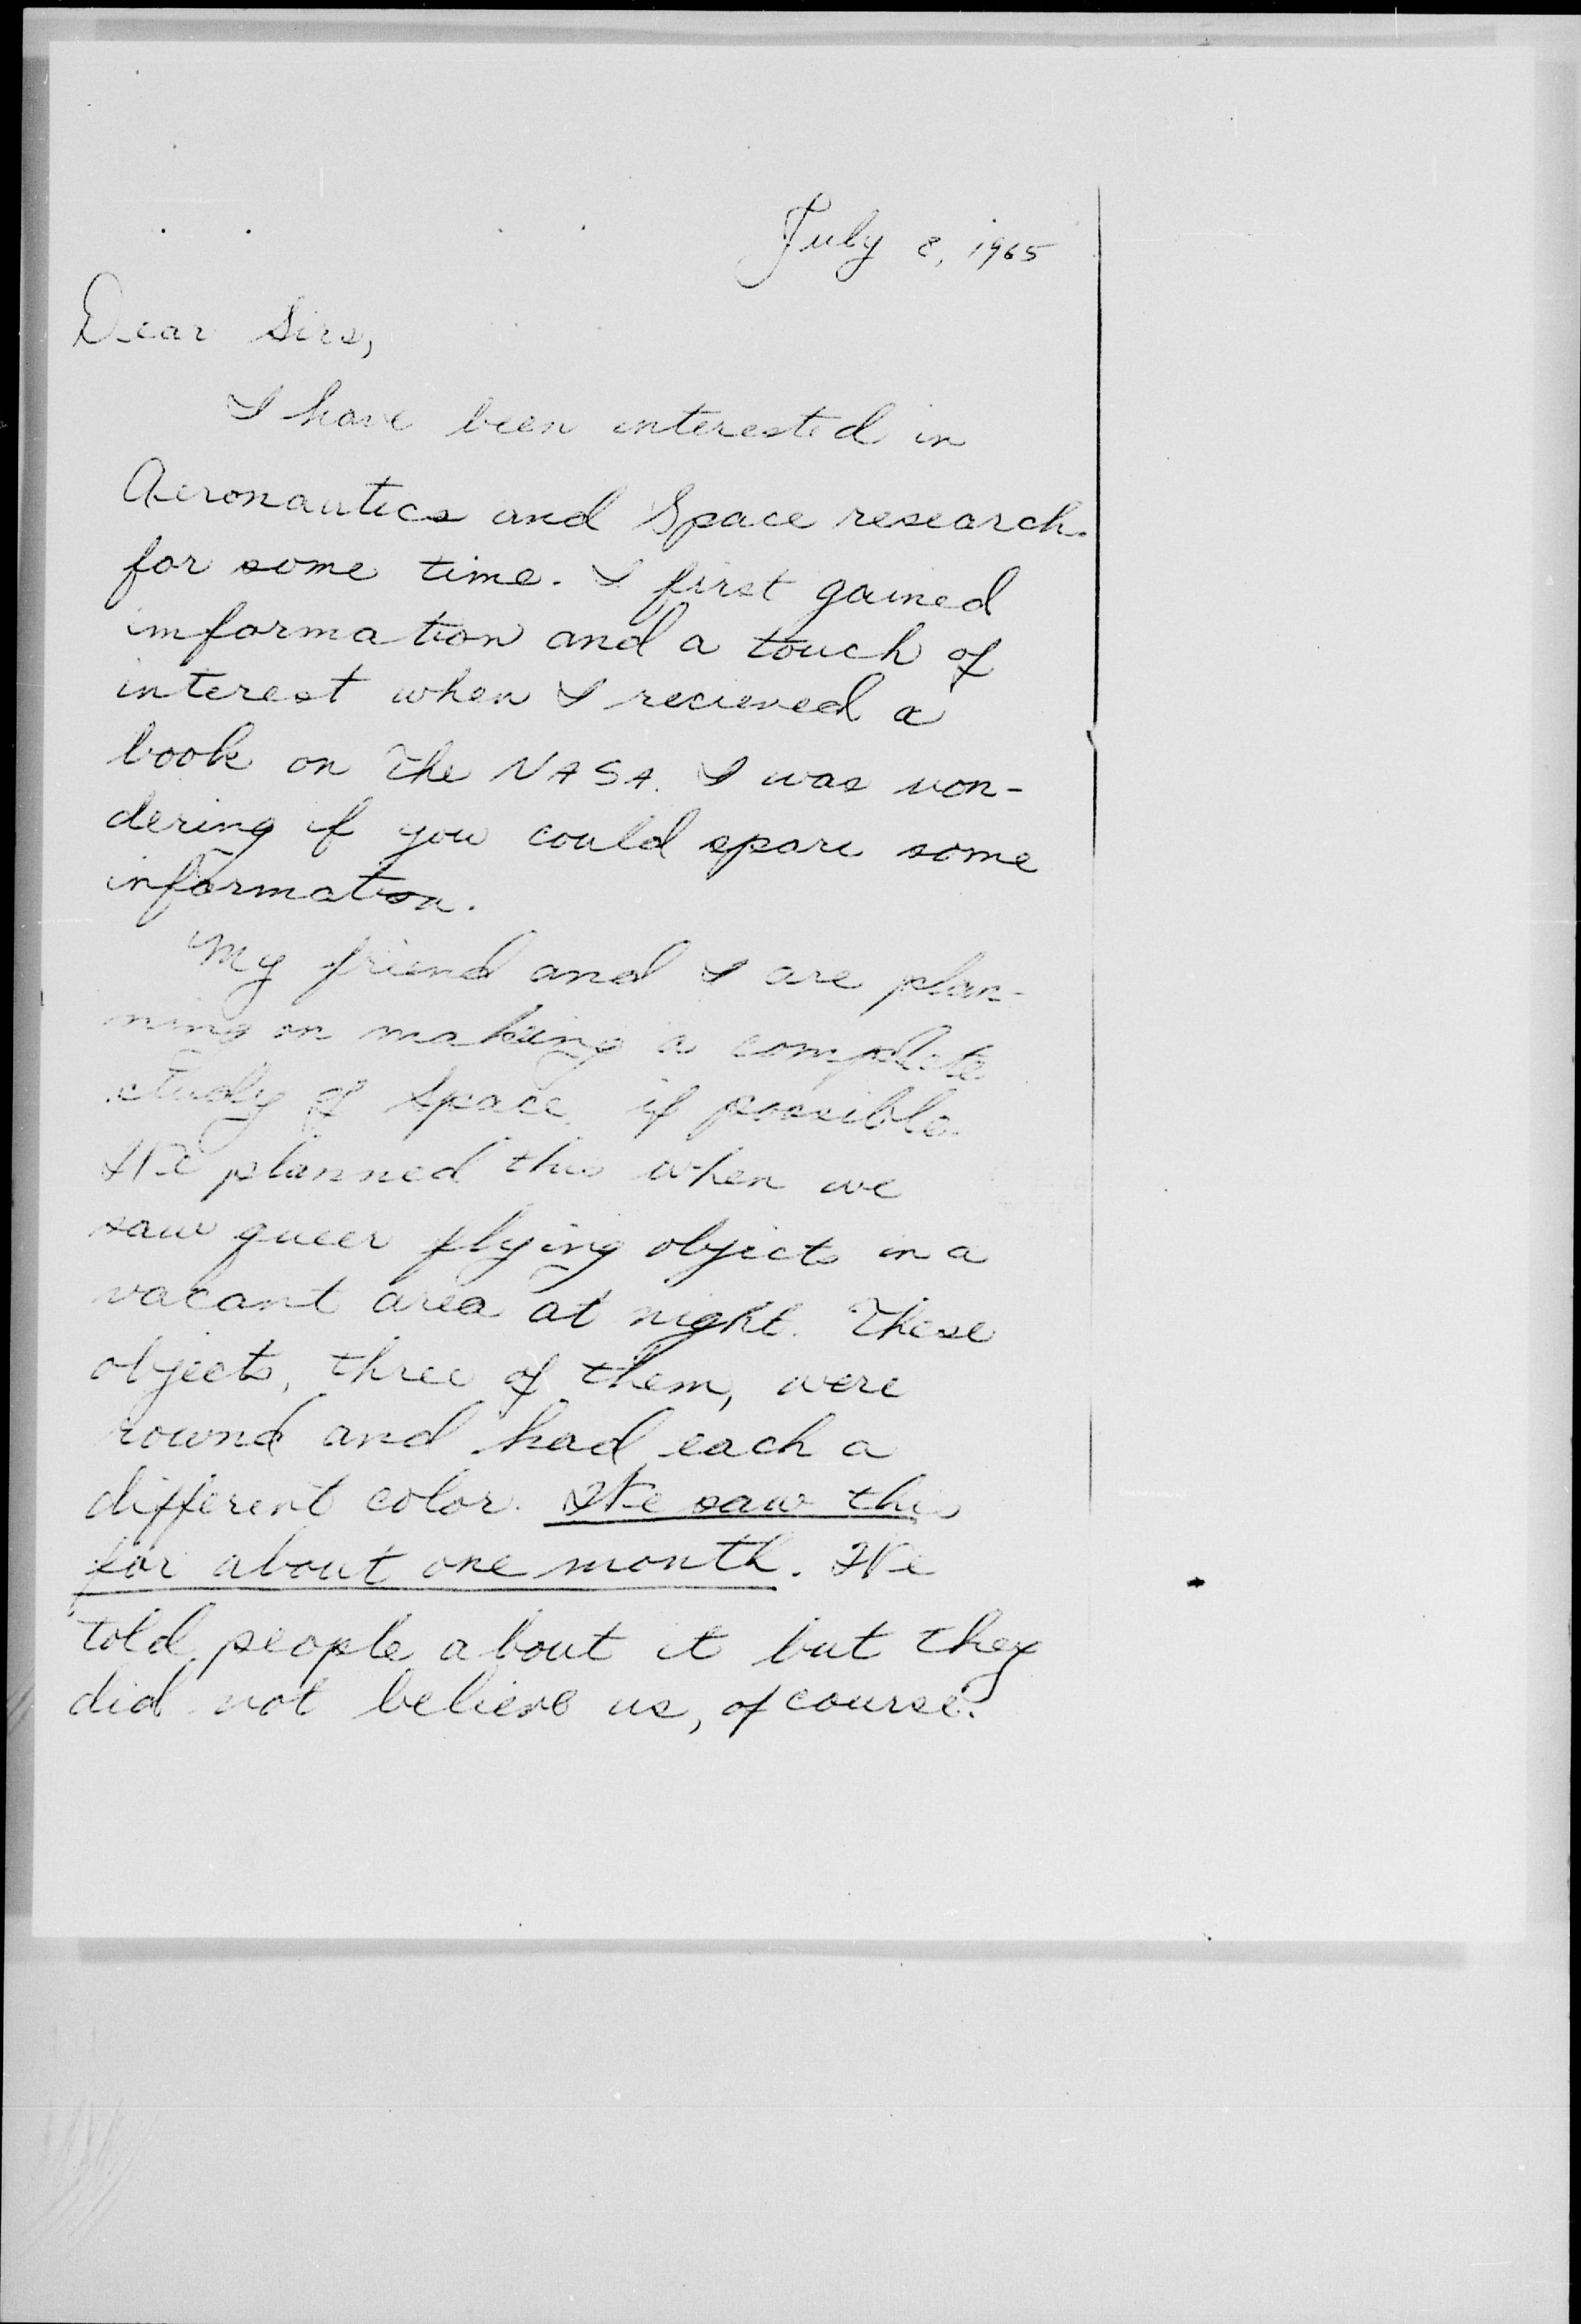 July 8, 1965
Dear Sirs,
I have been interested in
Aeronautics and Space research
for some time. I first gained
information and a touch of
interest when I recieved a
book on the NASA. I was won-
dering if you could spare some
information.
My friend and I are plan-
ning on making a complete
study of Space, if possible.
We planned this when we
saw queer flying objects in a
vacant area at night. These
objects, three of them, were
round and had each a
different color. We saw this
for about one month. We
told people about it but they
did not believe us, of course.